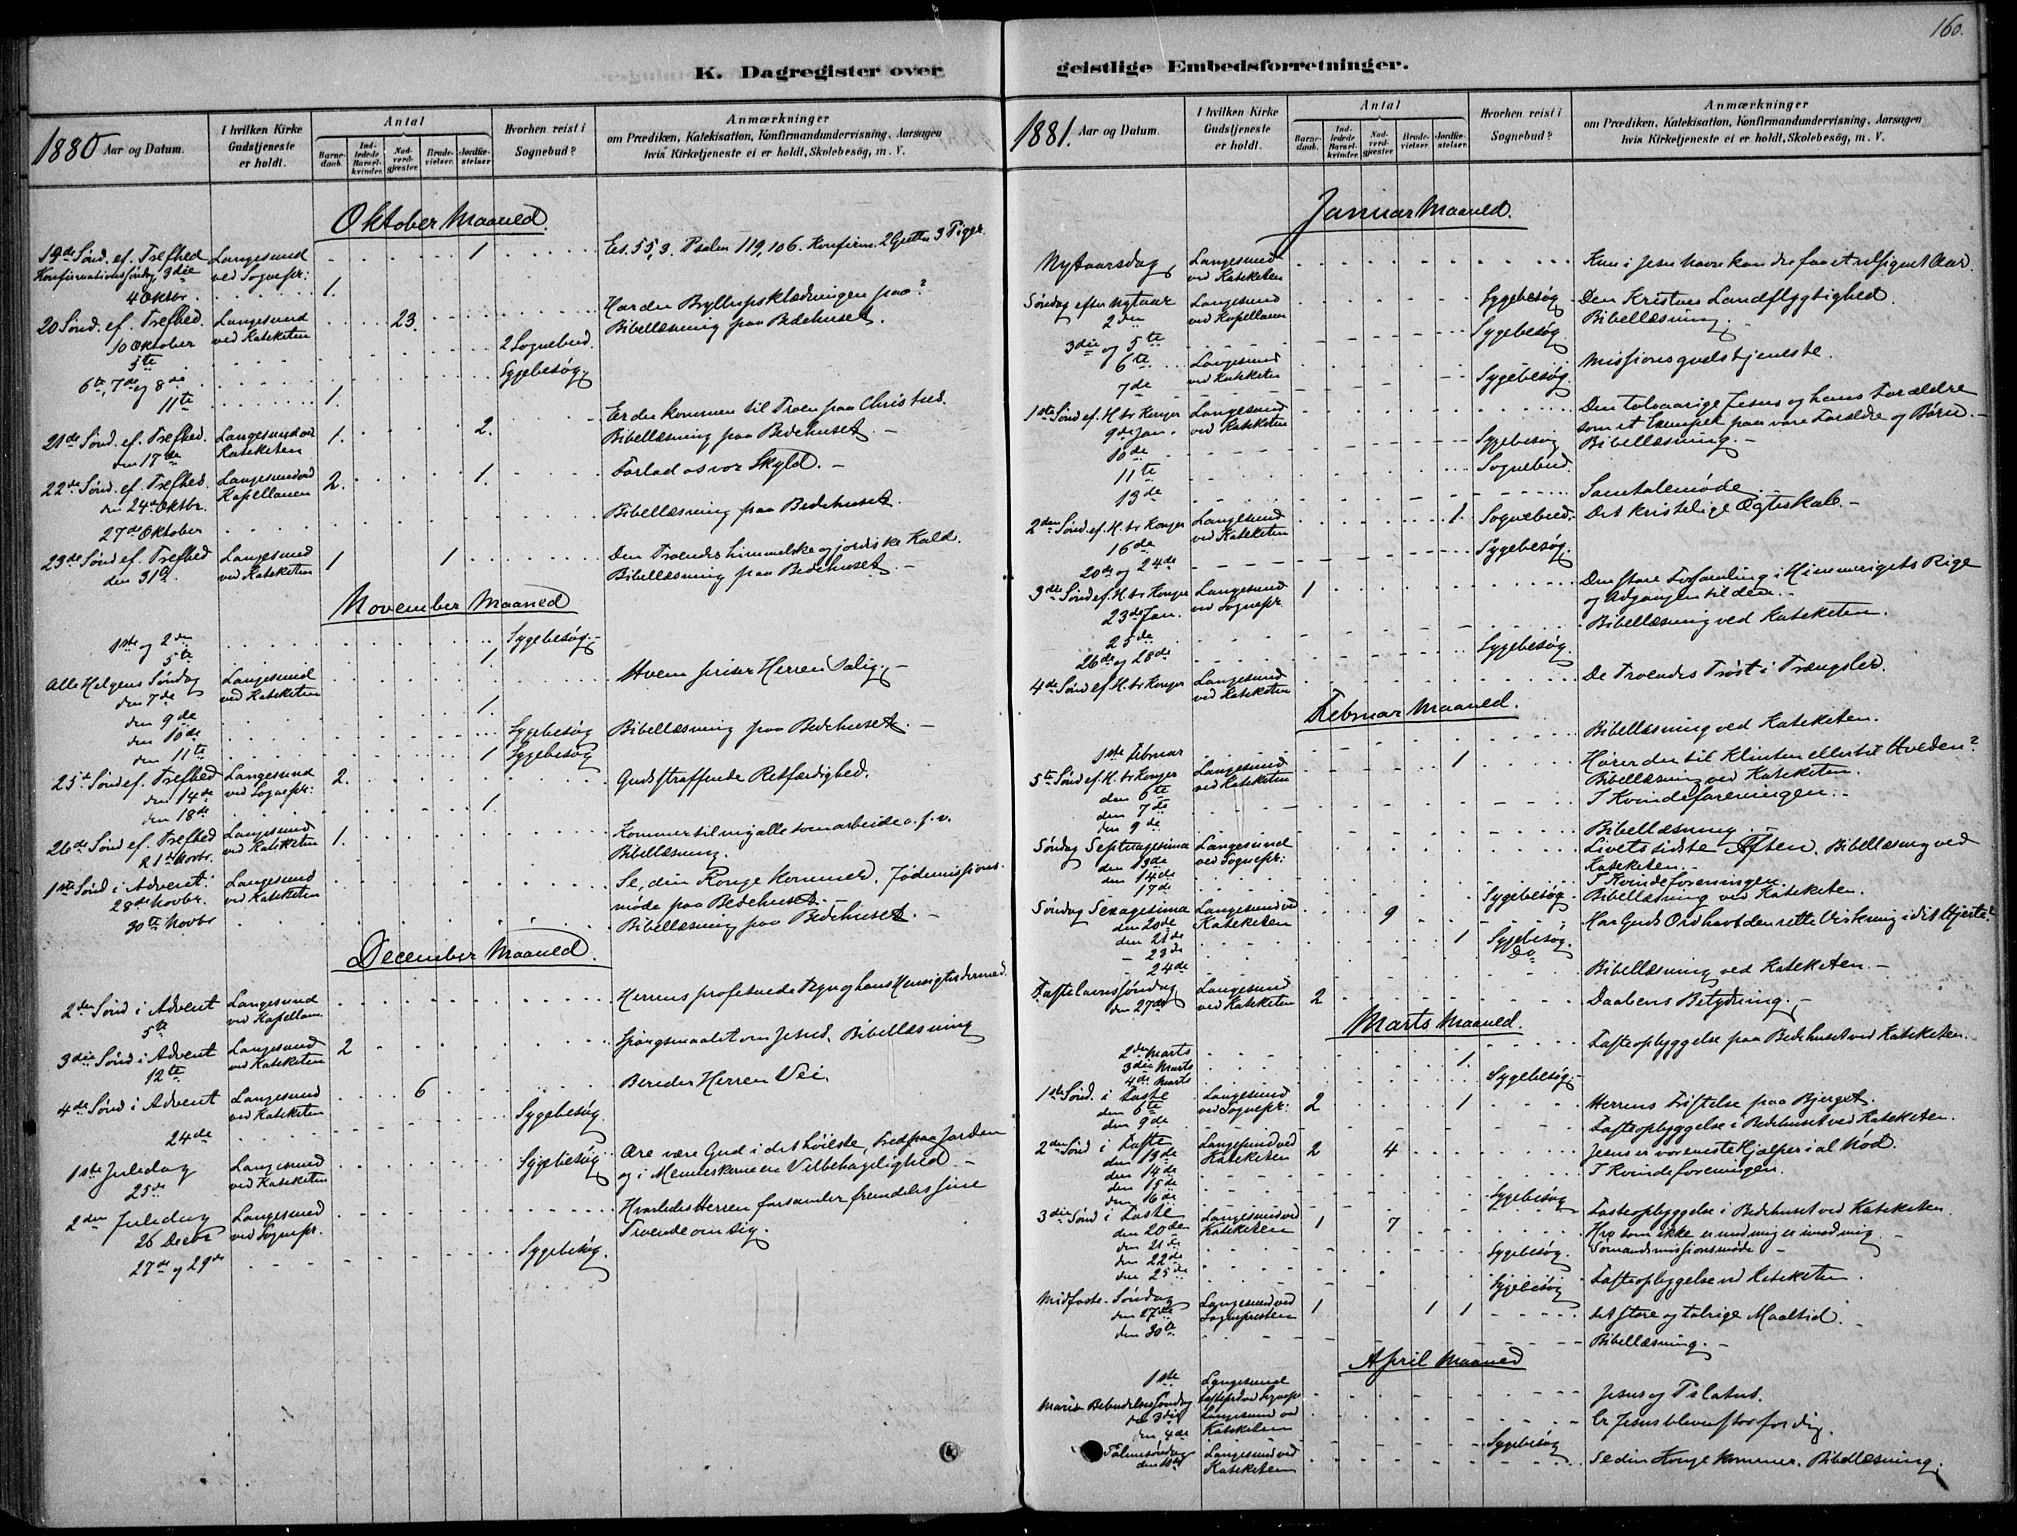 160.
K. Dagregister over
1880 Aar og Datum.
I hvilken Kirke Gudstjeneste er holdt.
Antal
Barnedaab.
Indledede Barselkvinder.
Nadverdgjæster.
Brudevielser.
Jordfæstelser.
Hvorhen reist i Sognebud?
Anmærkninger
om Prædiken, Katekisation, Konfirmandundervisning, Aarsagen
hvis Kirketjeneste ei er holdt, Skolebesøg, m. V.
Oktober Maaned.
19de Sønd. ef. Trefhed Langesund 1 Es. 55,3. Psalm 119,106. Konfirm. 2 Gutter 3 Piger.
Konfirmationssøndag 3die ved Sognepr:
4 Oktbr. 1.
20 Sønd. ef. Trefhed. Langesund 23. Har du Bryllupsklædningen paa?
10 Oktober ved Kateketen Bibellæsning paa Bedehuset.
5te 2 Sognebud.
6te, 7de og 8de Sygebesøg.
11te 1.
21de Sønd. ef. Trefhed. Langesund ved 1. 2. Er du kommen til Troen paa Christus.
den 17de Kateketen Bibellæsning paa Bedehuset.
22de Sønd. ef. Trefhed. Langesund ved 2. 1. Forlad os vor Skyld.
den 24de Oktbr. Kapellanen
27de Oktober Bibellæsning paa Bedehuset.
23de Sønd ef. Trefhed Langesund 1 1 Den Troendes himmelske og jordiske Kald.
den 31te ved Kateketen Bibellæsning paa Bedehuset.
November Maaned
1ste og 2den Sygebesøg.
5te 1
Alle Helgens Søndag Langesund Hvem priser Herren Salig.
den 7de ved Kateketen
den 9de 1.
den 10de Sygebesøg Bibellæsning paa Bedehuset.
den 11te 1 Sygebesøg
25de Sønd ef. Trefhed Langesund 2. Guds straffende Retfærdighed.
den 14de ved Sognepr:
den 18de 1
26de Sønd ef. Trefhed Langesund 1. Kommer til mig alle som arbeide o. s. v.
21de Novbr. ved Kateketen Bibellæsning.
1ste Sønd i Advent Langesund Se, din Konge kommer. Jødemissions-
28de Novbr. ved Kateketen møde paa Bedehuset.
30te Novbr Bibellæsning paa Bedehuset.
December Maaned.
2den Sønd i Advent Langesund Herrens og hans Hensigter dermed.
5te ved Kapellan.
3die Sønd i Advent Langesund 2 Spørgsmaalet om Jesus. Bibellæsning
12te ved Kateketen
4de Sønd i Advent Langesund 6 Bereder Herren Vei.
ved Kateketen
24de Sygebesøg
1ste Juledag Langesund Sygebesøg Ære være Gud i det høieste, Fred paa Jorden
25de ved Kateketen og i Menneskene en Velbehagelighed.
2den Juledag Langesund Hvorledes Herren forsamler fremdeles sine
26 Decbr ved Sognepr. Troende om sig.
27de og 29de Sygebesøg.
geistlige Embedsforretninger.
1881. Aar og Datum.
I hvilken Kirke Gudstjeneste er holdt.
Antal
Barnedaab.
Indledede Barselkvinder.
Nadverdgjæster.
Brudevielser.
Jordfæstelser.
Hvorhen reist i Sognebud?
Anmærkninger
om Prædiken, Katekisation, Konfirmandundervisning, Aarsagen
hvis Kirketjeneste ei er holdt, Skolebesøg, m. V.
Januar Maaned.
Nytaarsdag Langesund Kun i Jesu Navn kan dre faa et velsignet Aar.
ved Kateketen
Søndag efter Nytaar Langesund Sygebesøg Den Kristnes Landflygtighed.
2den ved Kapellanen Bibellæsning.
3die og 5te Sygebesøg
6te Langesund Missionsgudstjeneste.
7de ved Kateketen Sygebesøg
1ste Sønd ef. H. tr. Konger Langesund Den tolvaarige Jesus og hans Forældre
9de Jan. ved Kateketen som et Exempel paa vore Forældre og Børn.
10de Sygebesøg Bibellæsning.
11te Sognebud.
13de Samtalemøde
2den Sønd ef. H. tr. Konger Langesund 1. Sognebud. Det kristelige Ægteskab.
16de ved Kateketen
20de og 24de Sygebesøg.
3die Sønd ef. H. tr. Konger Langesund 1 Den store Forsamling i Himmerigets Rige
23de Jan. ved Sognepr og Adgangen til den.
25de Bibellæsning ved Kateketen.
26de og 28de Sygebesøg
4de Sønd ef. H. tr Konger Langesund De Troendes Trøst i Trængsler.
ved Kateketen
Februar Maaned.
1ste Februar Bibellæsning ved Kateketen.
5te Sønd ef. H. tr Konger Langesund 1 Hører du til Klinten eller til Hveden?
den 6te ved Kateketen Bibellæsning ved Kateketen.
den 7de I Kvindeforeningen.
den 9de Bibellæsning.
Søndag Septuagesima Langesund Livets sidste Aften. Bibellæsning ved
den 13de ved Sognepr: Kateketen.
den 14de I Kvindeforeningen
17de Sygebesøg Bibellæsning ved Kateketen.
Søndag Sexagesima Langesund ved 9 Har Guds Ord havt den rette Virkning i dit Hjerte?
den 20de Kateketen
den 21de 1 Sygebesøg.
23de Do
24de Bibellæsning ved Kateketen.
Fastelavnssøndag Langesund 2 Daabens Betydning.
den 27de ved Kateketen
Marts Maaned.
2den Marts Fasteopbyggelse paa Bedehuset ved Kateketen.
3die Marts 1.
4de Marts Sygebesøg.
1ste Sønd. i Faste Langesund 2 1 Herrens Fristelse paa Bjerget.
den 6te ved Sognepr:
den 9de Fasteopbyggelse i Bedehuset ved Kateketen.
2den Sønd i Faste Langesund ved 2 4 Jesus er vor eneste Hjælper i al Nød.
den 13de Kateketen
den 14de I Kvindeforeningen.
den 15de Sygebesøg
den 16de Fasteopbyggelse i Bedehuset ved Kateketen.
3die Sønd i Faste Langesund ved 1 7 Hvo som ikke er med mig er imod mig.
den 20de Kateketen
den 21de Sømandsmissionsmøde
den 22de Sygebesøg.
den 25de Sygebesøg Fasteopbyggelse ved Kateketen.
Midfaste Søndag Langesund ved 1 1 1 Det store og talrige Maaltid.
den 27de Sognepresten
den 30te Bibellæsning.
April Maaned
1ste Langesund Jesus og Pilatus.
Mariæ Bebudelsessøndag Langesund ved Er Jesus bleven stor for dig.
den 3die Kateketen
den 4de Sygebesøg
Palmesøndag Langesund ved Se din Konge kommer. Bibellæsning.
den 10de Kateketen